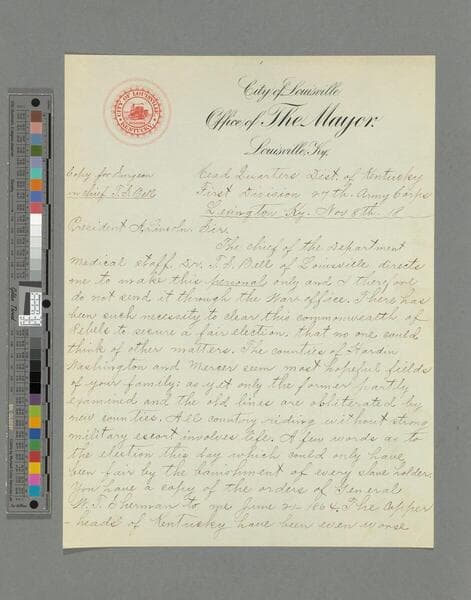 City of Louisville
Office of The Mayor.
Louisville, Ky.
CITY OF LOUISVILLE
KENTUCKY
Copy for Surgeon
in chief T. S. Bell
Head Quarters Dist. of Kentucky
First Division 27th. Army Corps
Lexington Ky. Nov 8th. 18
President A. Lincoln. Sir.
The chief of the department
medical staff. Dr. T. S. Bell of Louisville, directs
me to make this personal only and I therefore
do not send it through the War office. There has
been such necessity to clear this commonwealth of
Rebels to secure a fair election, that no one could
think of other matters. The counties of Hardin
Washington and Mercer seem most hopeful fields
of your family; as yet only the former partly
examined and the old lines are obliterated by
new counties. All country riding without strong
military escort involves life. A few words as to
the election this day which could only have
been fair by the banishment of every slave holder.
You have a copy of the orders of General
W. T. Sherman to me June 21 1864. The Copper
-heads of Kentucky have been even worse